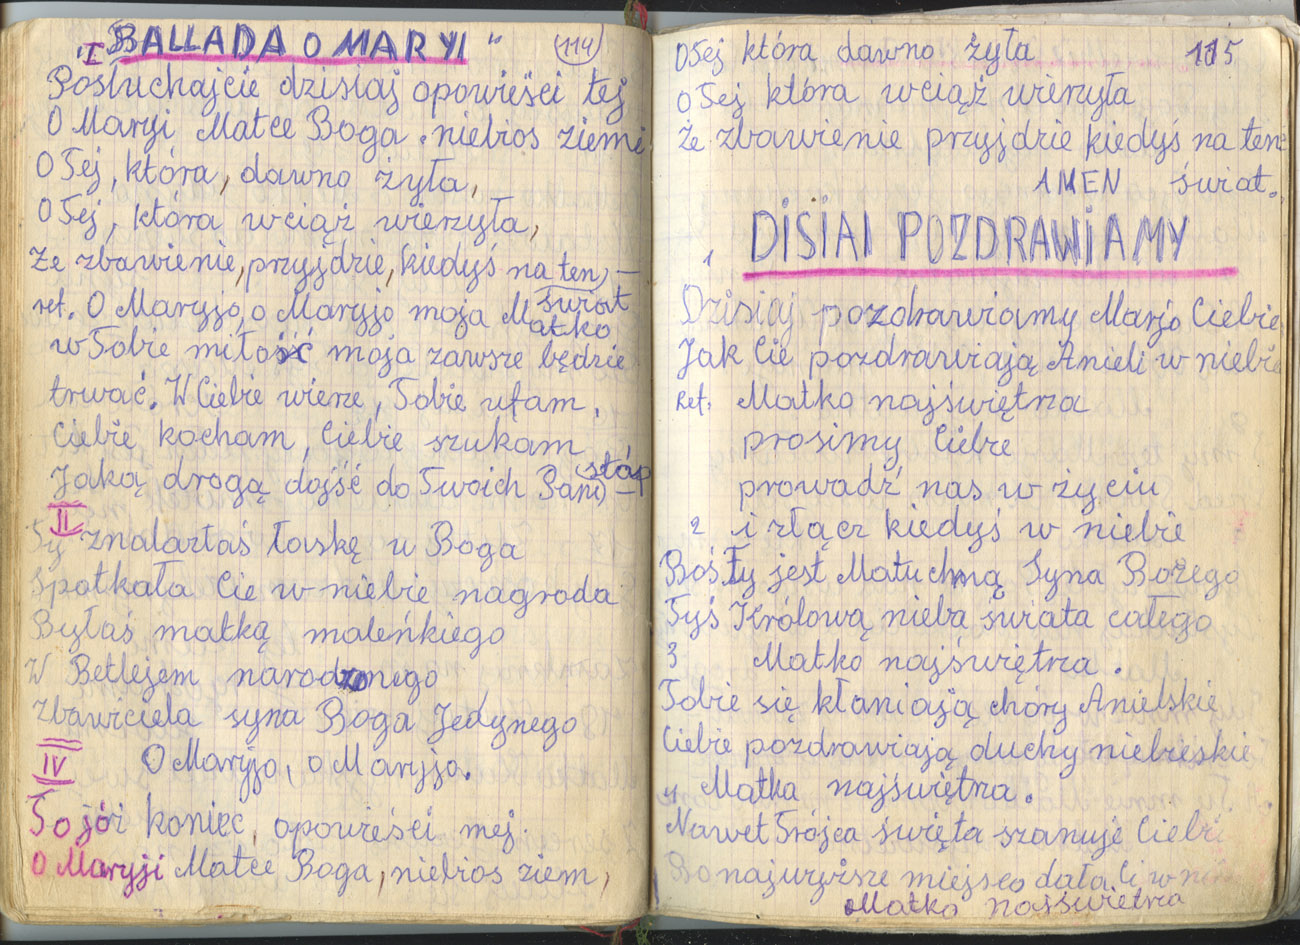 „BALLADA O MARYI" (114)
I
Posłuchajcie dzisiaj opowieści tej
O Maryi Matce Boga. niebios ziemi
O Tej, która, dawno żyła,
O Tej, która wciąż wierzyła,
Że zbawienie, przyjdzie, kiedyś na ten, –
świat
ret. O Maryjo, o Maryjo moja Matko
w Tobie miłość moja zawsze będzie
trwać. W Ciebie wierze, Tobie ufam,
Ciebie kocham, Ciebie szukam
Jaką drogą dojść do Twoich Pani, –
stóp
II
Ty znalazłaś łaskę u Boga
Spotkała Cie w niebie nagroda
Byłaś matką maleńkiego
W Betlejem narodzonego
Zbawiciela syna Boga Jedynego
O Maryjo, o Maryjo.
IV
To jór koniec, opowieści mej.
O Maryji Matce Boga, niebios ziem,
115
O Tej która dawno żyła
O Tej która wciąż wierzyła
Że zbawienie przyjdzie kiedyś na ten
AMEN świat.
DISIAI POZDRAWIAMY
1
Dzisiaj pozdrawiamy Marjo Ciebie
Jak Cie pozdrawiają Anieli w niebie
Ref. Matko najświętrza
prosimy Ciebie
prowadź nas w życiu
i złącz kiedyś w niebie
2
Boś Ty jest Matuchną Syna Bożego
Tyś Królową nieba świata całego
Matko najświętrza.
3
Tobie się kłaniają chóry Anielskie
Ciebie pozdrawiają duchy niebieskie
Matka najświętrza.
4
Nawet Trójca święta szanuje Ciebie
Bo najwyższe miejsco dała Ci w
Matko najświetrza